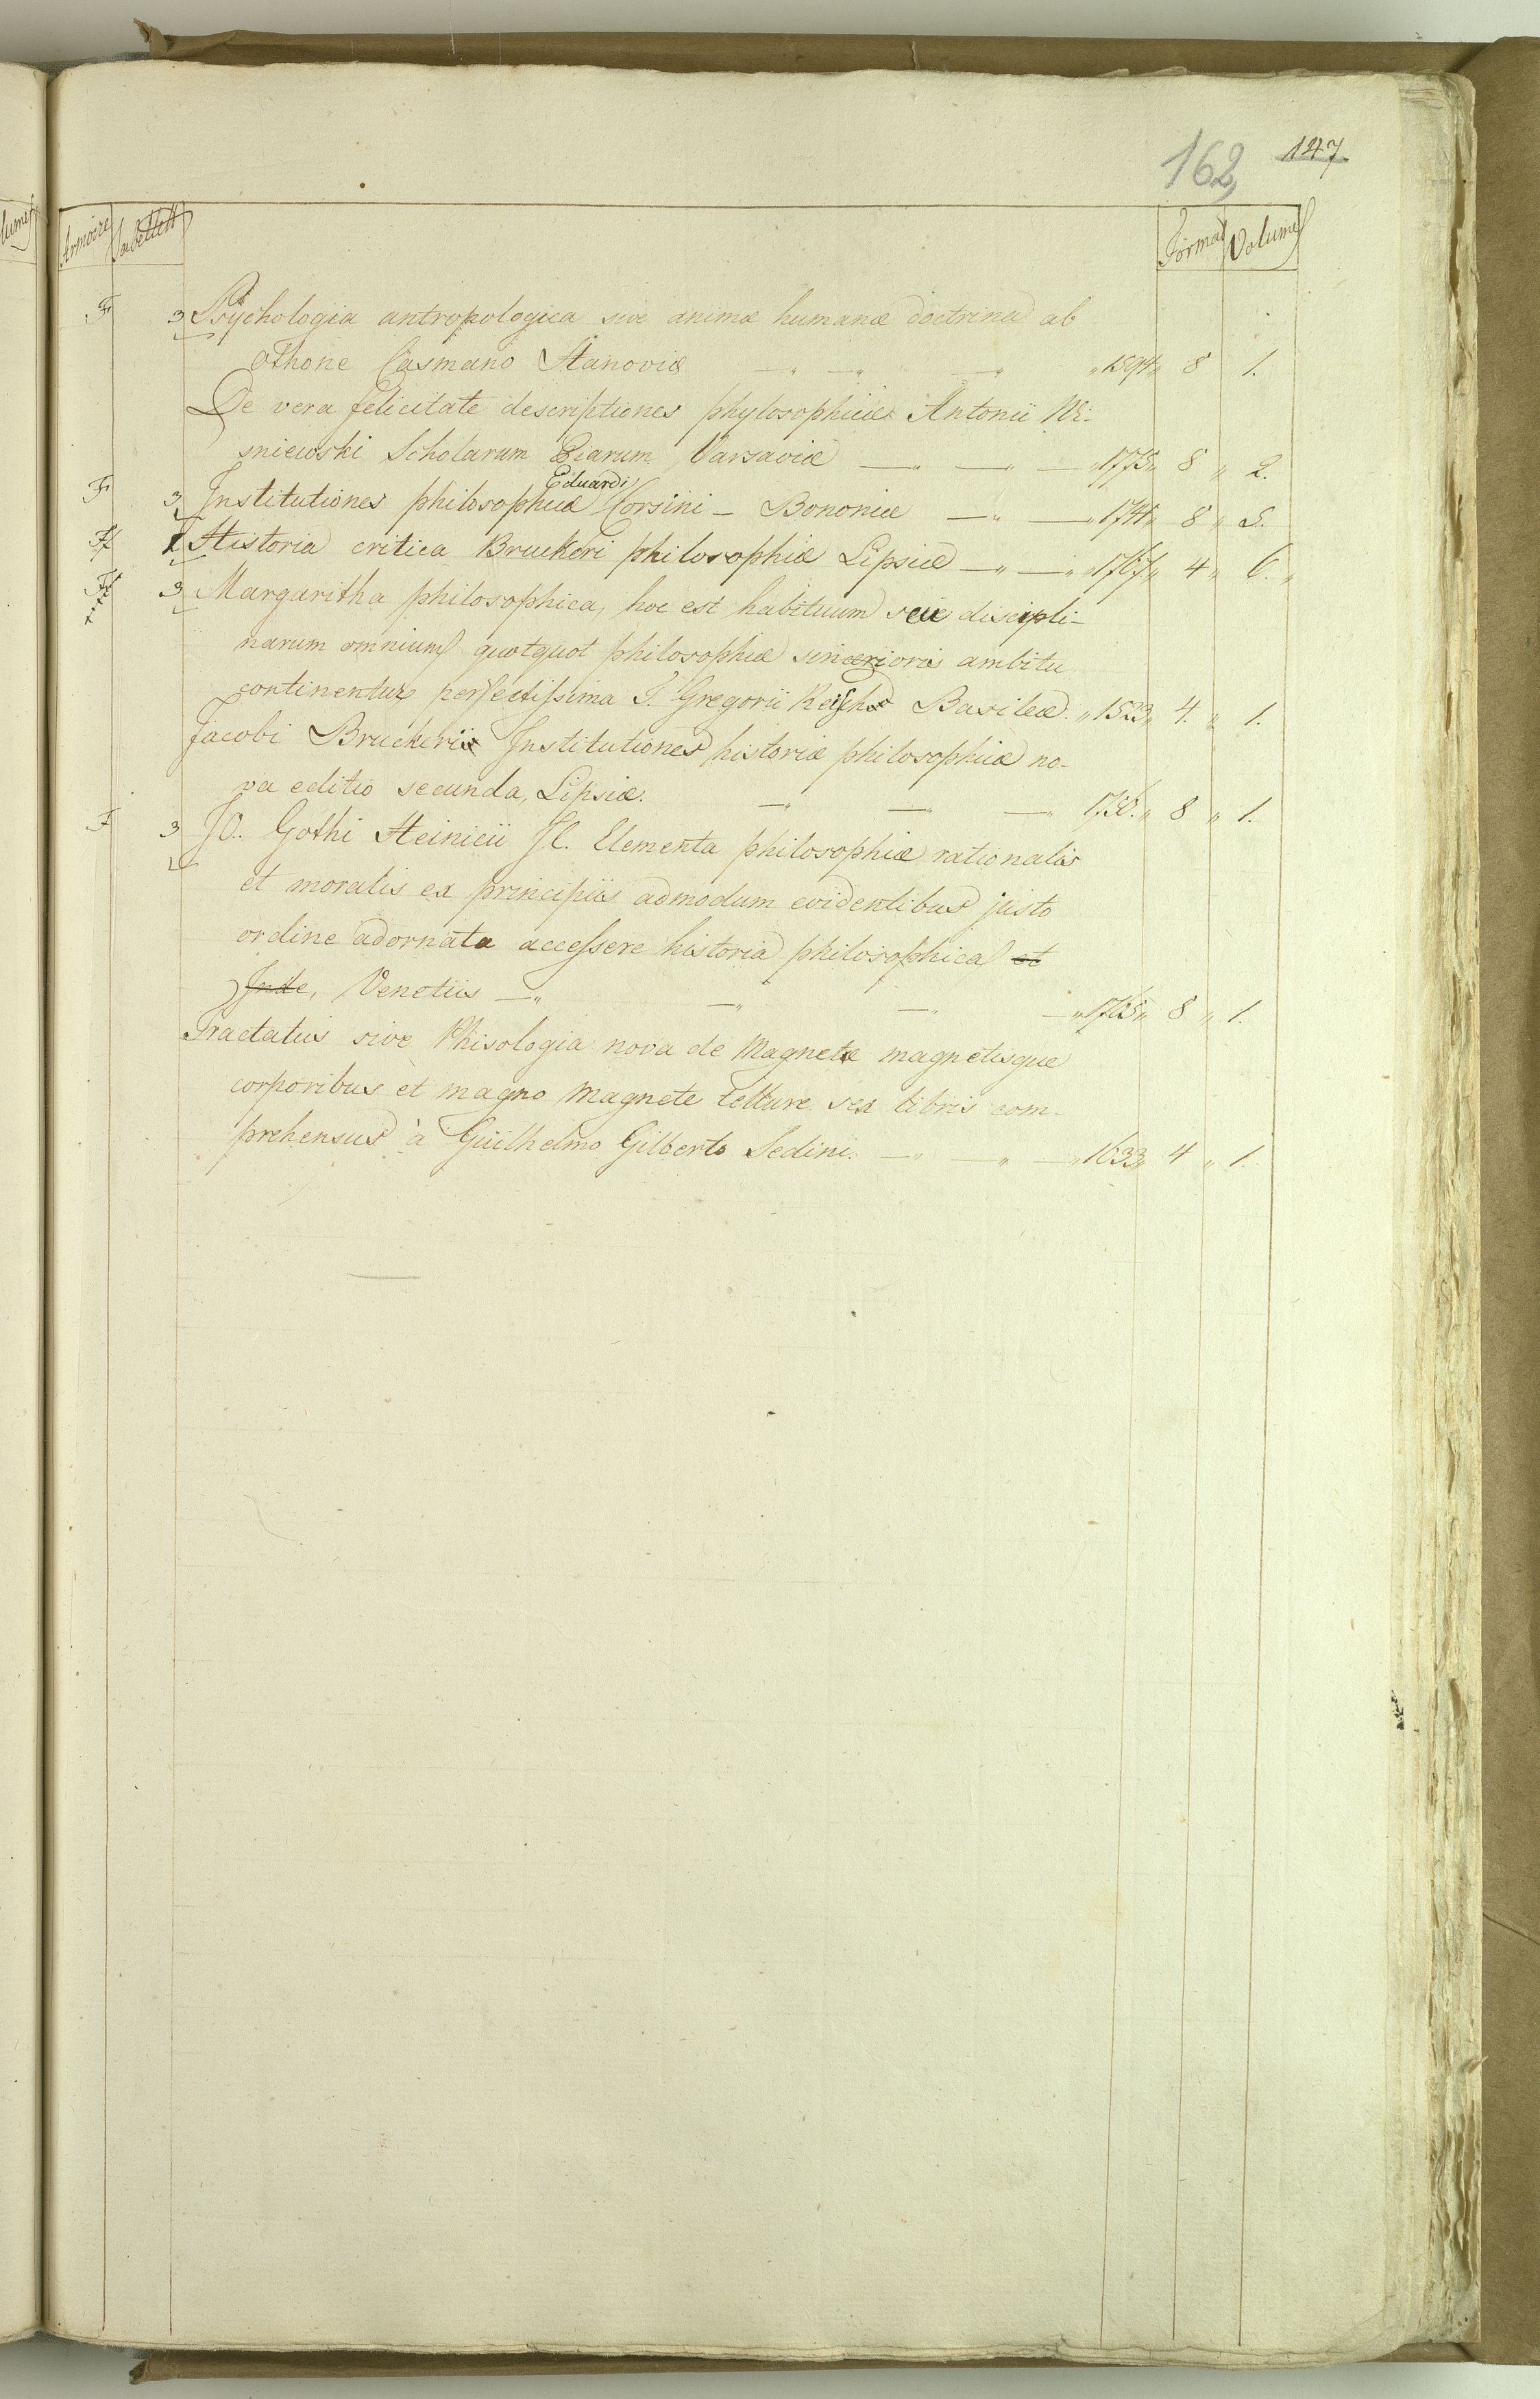 162, 147.
Armoire Tabellett Format Volumes
F 3 Psychologia antropologica sive animæ humanæ doctrina ab
Othone Casmano Hanoviæ —„ —„ —„ „1594„ 8 1.
De vera felicitate descriptiones phylosophicæ Antonii Wi-
sniewski Scholarum Piarum Varsaviæ —„ —„ —„1773„ 8 „ 2.
Eduardi
F 3 Institutiones philosophicæ Corsini – Bononiæ —„ —„1741„ 8 „ 5.
1 Historia critica Bruckeri philosophiæ Lipsiæ —„ —„ „1767„ 4 „ 6. „
3 Margaritha philosophica, hoc est habituum seu discipli-
narum omnium quotquot philosophiæ sincerioris ambitu
continentur perfectissima T. Gregorii Reisch Basileæ. „1523„ 4. „ 1.
Jacobi Bruckeri Institutiones historiæ philosophicæ no-
va editio secunda, Lipsiæ. —„ —„ —„ 1756.„ 8 „ 1.
F 3 JO. Gothi Heinicii JC. Elementa philosophiæ rationalis
et moralis ex principiis admodum evidentibus justo
ordine adornata accessere historia philosophica et
Inde, Venetiis —„ —„ —„ —„1765„ 8 „ 1.
Tractatus sive Phisologia nova de Magnete magnetisque
corporibus et magno Magnete tellure sex libris com-
prehensus à Guilhelmo Gilberto Sedini. —„ —„ —„1633„ 4 „ 1.